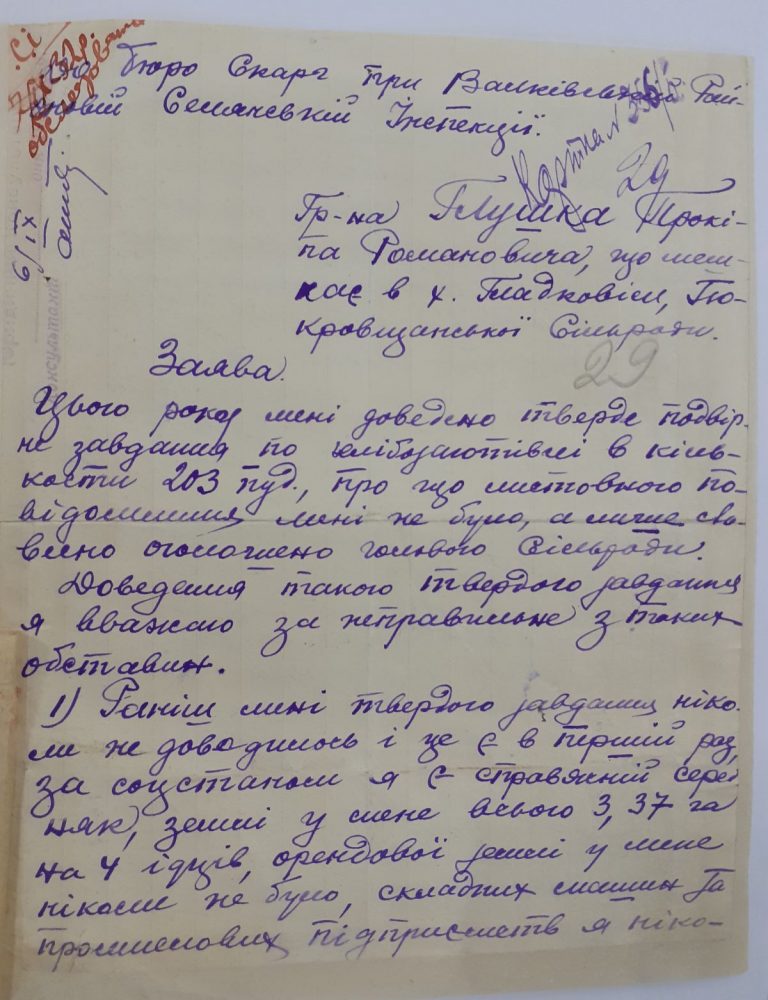 До бюро Скарг при Валківській Рай-
оновій Селянській Інспекції.
29
Гр-на Глушка Прокі-
па Романовича, що меш-
кає в х. Гладковім, По-
кровщанської Сільради.
29
Заява.
Цього року мені доведено тверде подвір-
не завдання по хлібозаготівлі в кіль-
кости 203 пуд., про що листовного по-
відомлення мені не було, а лише сло-
весно оголошено головою Сільради.
Доведення такого твердого завдання
я вважаю за неправильне з таких
обставин.
1) Раніш мені твердого завдання ніко-
ли не доводилось і це є в перший раз,
за соцстаном я є справжній серед
няк, землі у мене всього 3,37 га
на 4 їдців, орендової землі у мене
ніколи не було, складних машин та
промислових підприємств я ніко-
6/IX